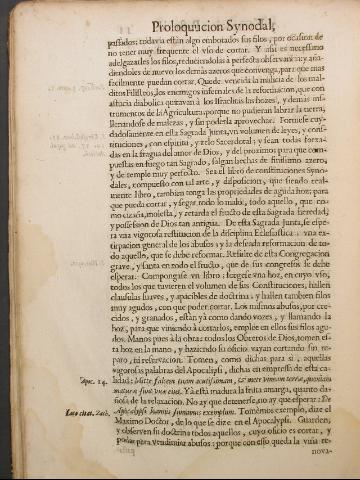 Proloquucion Synodal,
passados; todavia están algo embotados sus filos, por ocasion de
no tener muy frequente el vso de cortar. Y assi es necessario
adelgazarles los filos, reduciendolas à perfecta observancia; y aña-
diendoles de nuevo los demàs azeros que convenga, para que mas
facilmente puedan cortar. Quede vencida la malicia de los mal-
ditos Filisteos, los enemigos infernales de la reformacion, que con
astucia diabolica quitavan à los Israelitas las hozes, y demàs ins-
trumentos de la Agricultura, porque no pudiesen labrar la tierra,
llenandose de malezas, y sin poderla aprovechar. Formese cuy-
dadosamente en esta Sagrada Junta, vn volumen de leyes, y consti-
tuciones, con espiritu, y zelo Sacerdotal; y sean todas forza-
das en la fragua del amor de Dios, y del proximo; para que com-
puestas en fuego tan Sagrado, salgan hechas de finissimo azero,
y de temple muy perfecto. Sea el libro de constituciones Syno-
dales, compuesto con tal arte, y disposicion, que siendo real-
mente libro, tambien tenga las propiedades de aguda hoz; para
que pueda cortar, y segar todo lo malo, todo aquello, que co-
mo cizaña, molesta, y retarda el fructo de esta Sagrada heredad,
y possession de Dios tan antigua. De esta Sagrada Junta, se espe-
ra vna vigorosa restitucion de la disciplina Eclesiastica: vna ex-
tirpacion general de los abusos: y la deseada reformacion de to-
do aquello, que se debe reformar. Resulte de esta Congregacion
grave, y santa en todo el fructo, que de sus congressos se debe
esperar. Compongase vn libro: fuegese vna hoz, en cuyo vso,
todos los que tuvieren el volumen de sus Constituciones, hallen
clausulas suaves, y apacibles de doctrina: y hallen tambien filos
muy agudos, con que poder cortar. Los mismos abusos, por cre-
cidos, y granados, estàn yà como dando vozes, y llamando la
hoz, para que viniendo à cortarlos, emplée en ellos sus filos agu-
dos. Manos pues à la obra: todos los Obreros de Dios, tomen es-
ta hoz en la mano, y haziendo su oficio vayan cortando sin re-
paro, ni reservacion. Tomen, como dichas para si, aquellas
vigorosas palabras del Apocalypsi, dichas en empressa de esta ca-
Apoc. 14. lidad:
Luco citat. Zach. Apocalypsi Ioannis sumamus exemplum. Tomèmos exemplo, dize el
Maximo Doctor, de lo que se dize en el Apocalypsi. Guarden,
y observen su doctrina todos aquellos, cuyo oficio es cortar, y
podar para vendimiar abusos: porque con esso queda la viña re-
nova-